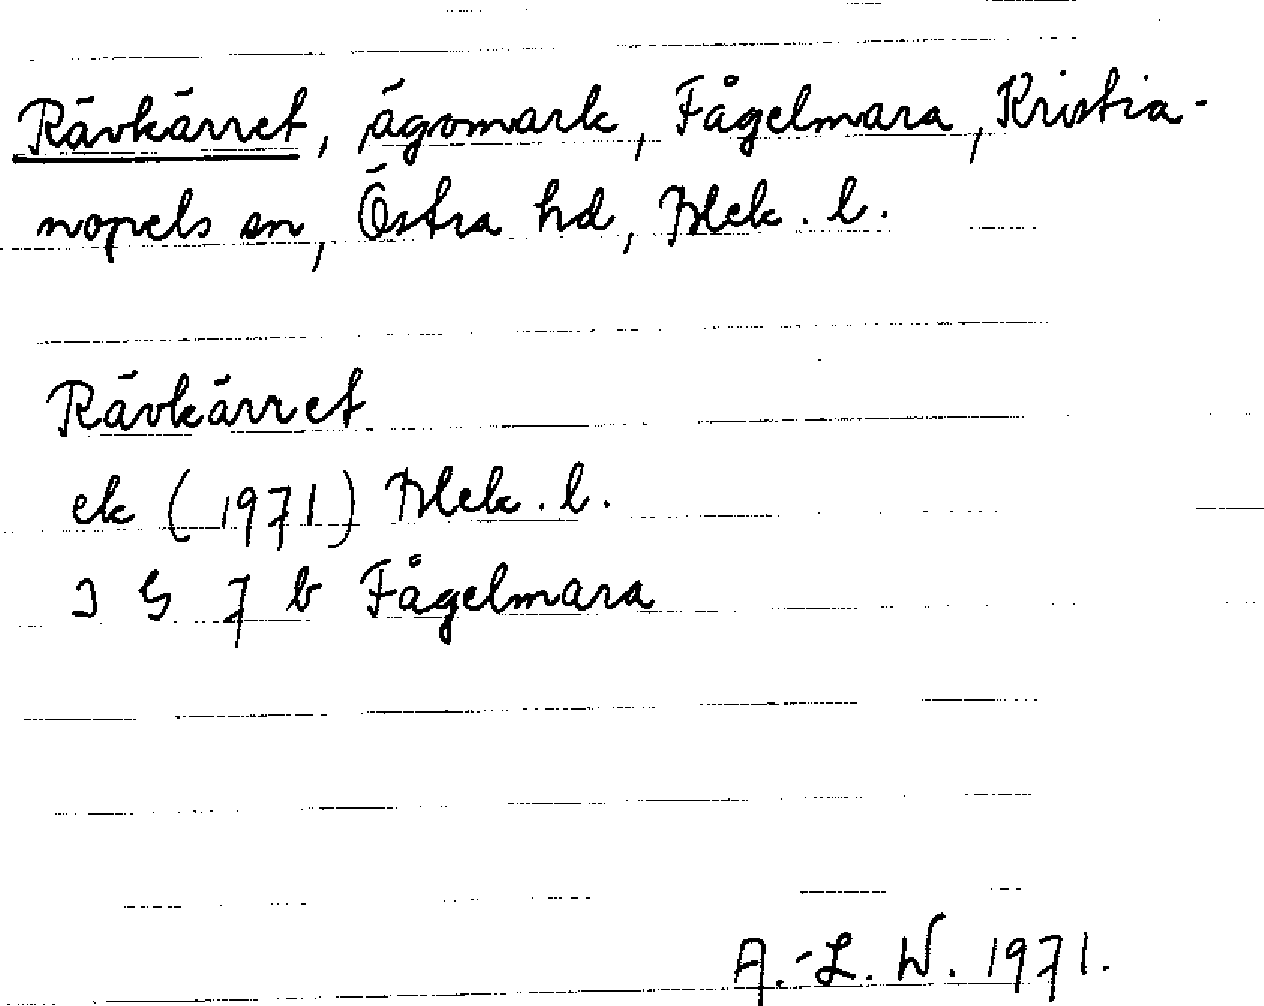 Rävkärret, ägomark, Fågelmara, Kristia-
nopels sn, Östra hd, Blek. l.
Rävkärret
ek (1971) Blek. l.
3 G 7 b Fågelmara
A.-L. W. 1971.